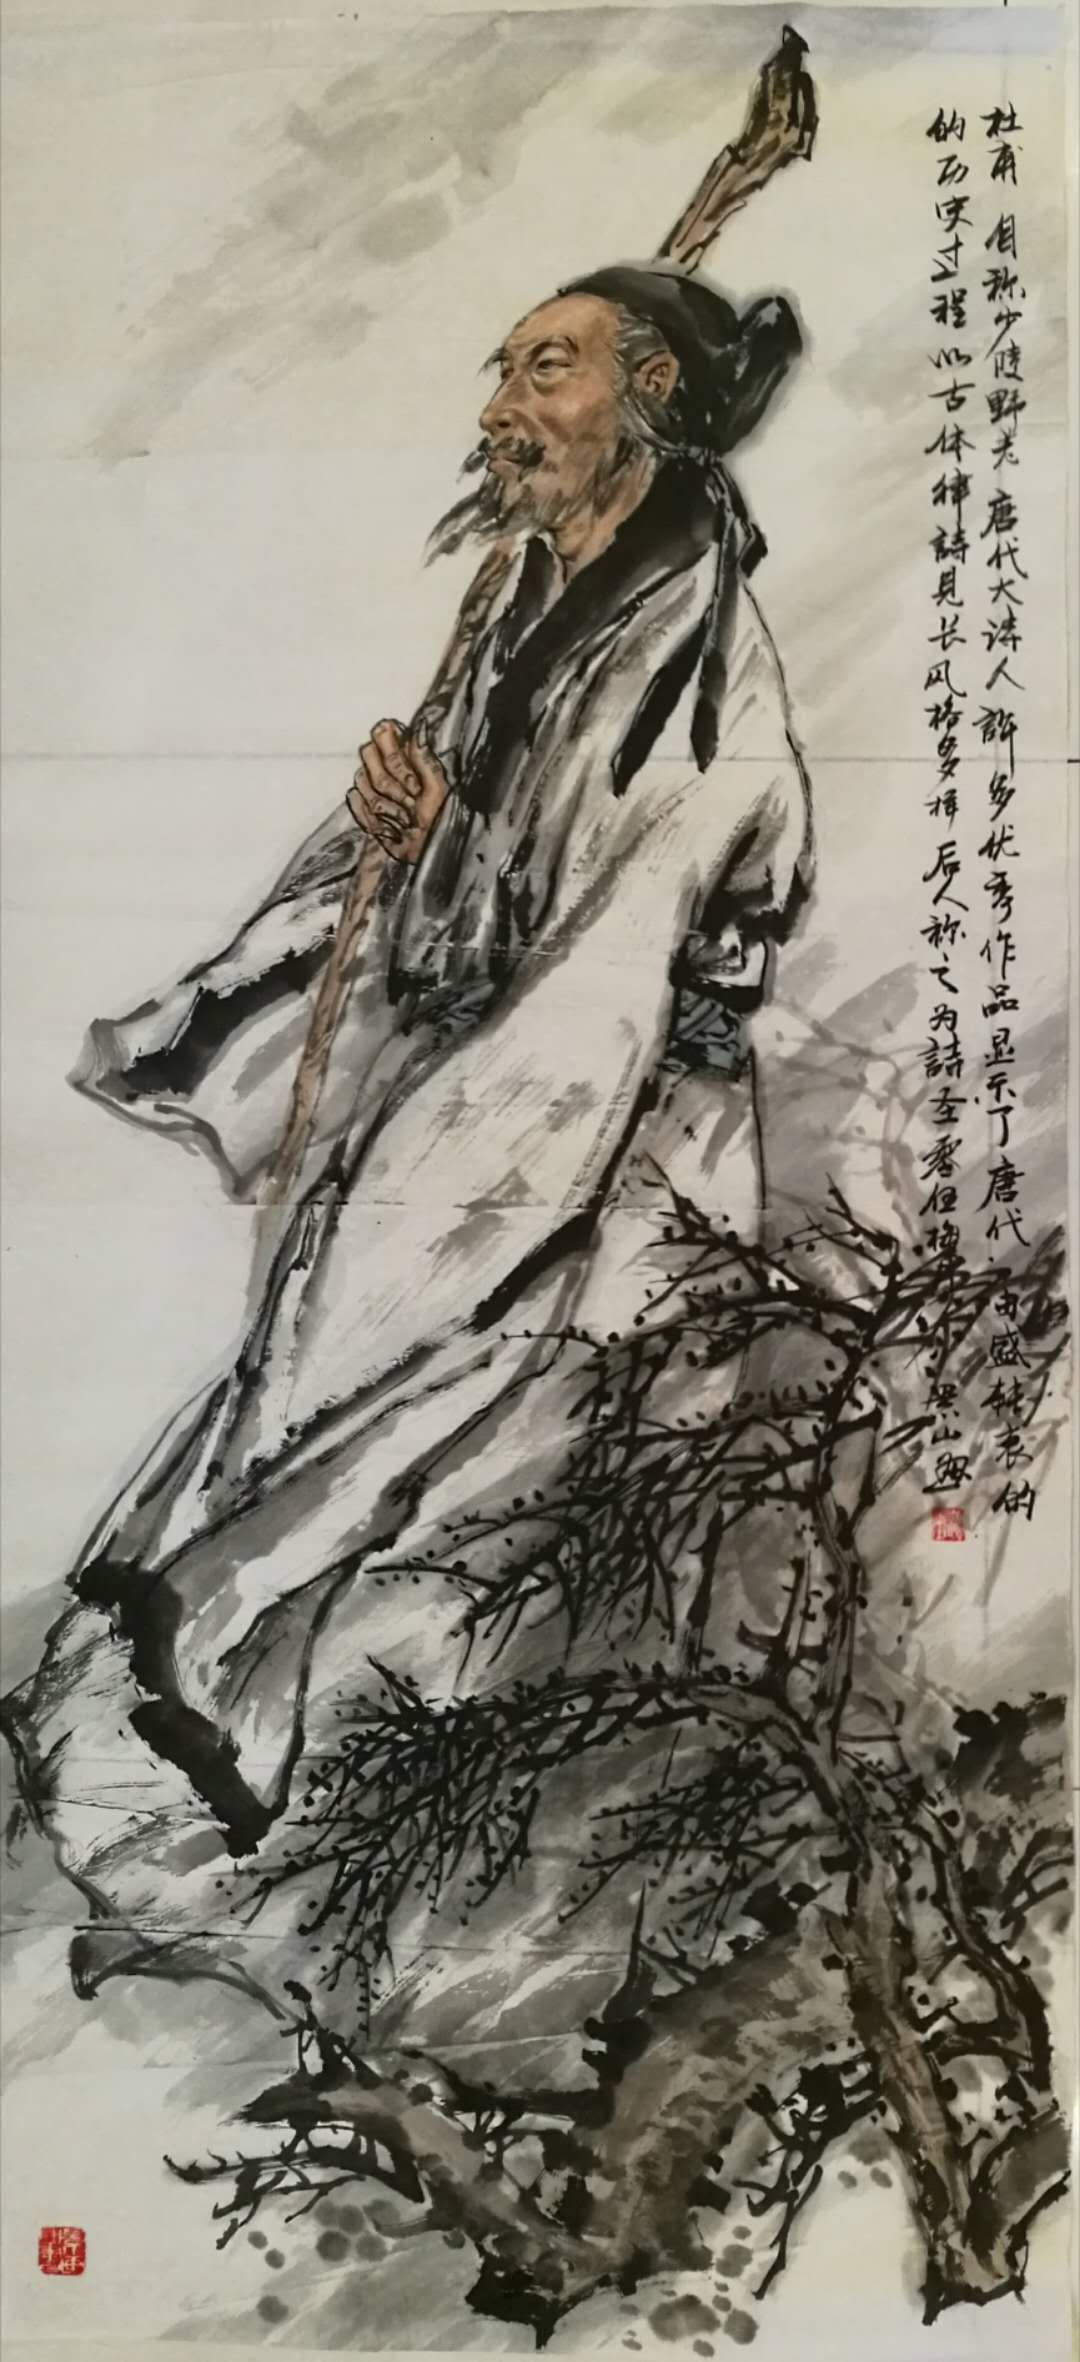 杜甫 自称少陵野老 唐代大诗人 許多优秀作品显示了唐代由盛转衰的
的历史过程 以古体律詩見长 风格多样 后人称之为詩圣